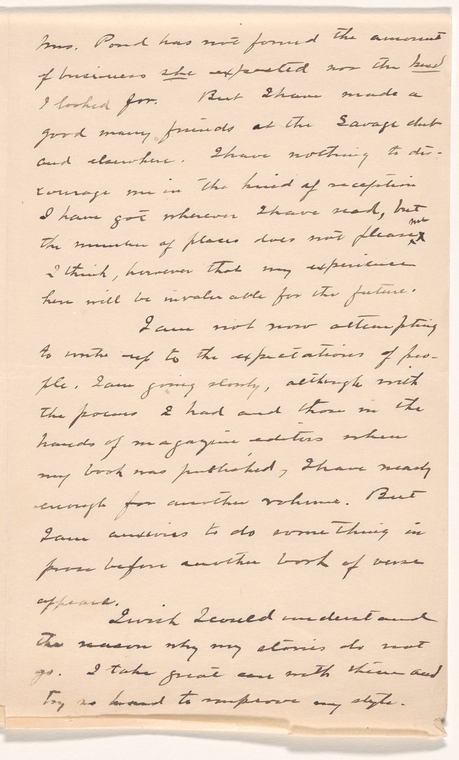 Mrs. Pond has not found the amount
of business she expected nor the kind
I looked for. But I have made a
good many friends at the Savage club
and elsewhere. I have nothing to dis-
courage me in the kind of reception
I have got wherever I have read, but
the number of places does not please me
I think, however that my experience
here will be invaluable for the future.
I am not now attempting
to write up to the expectations of peo-
ple. I am going slowly, although with
the poems I had and those in the
hands of magazine editors when
my book was published, I have nearly
enough for another volume. But
I am anxious to do something in
prose before another book of verse
appears.
I wish I could understand
the reason why my stories do not
go. I take great care with them and
try so hard to improve my style.